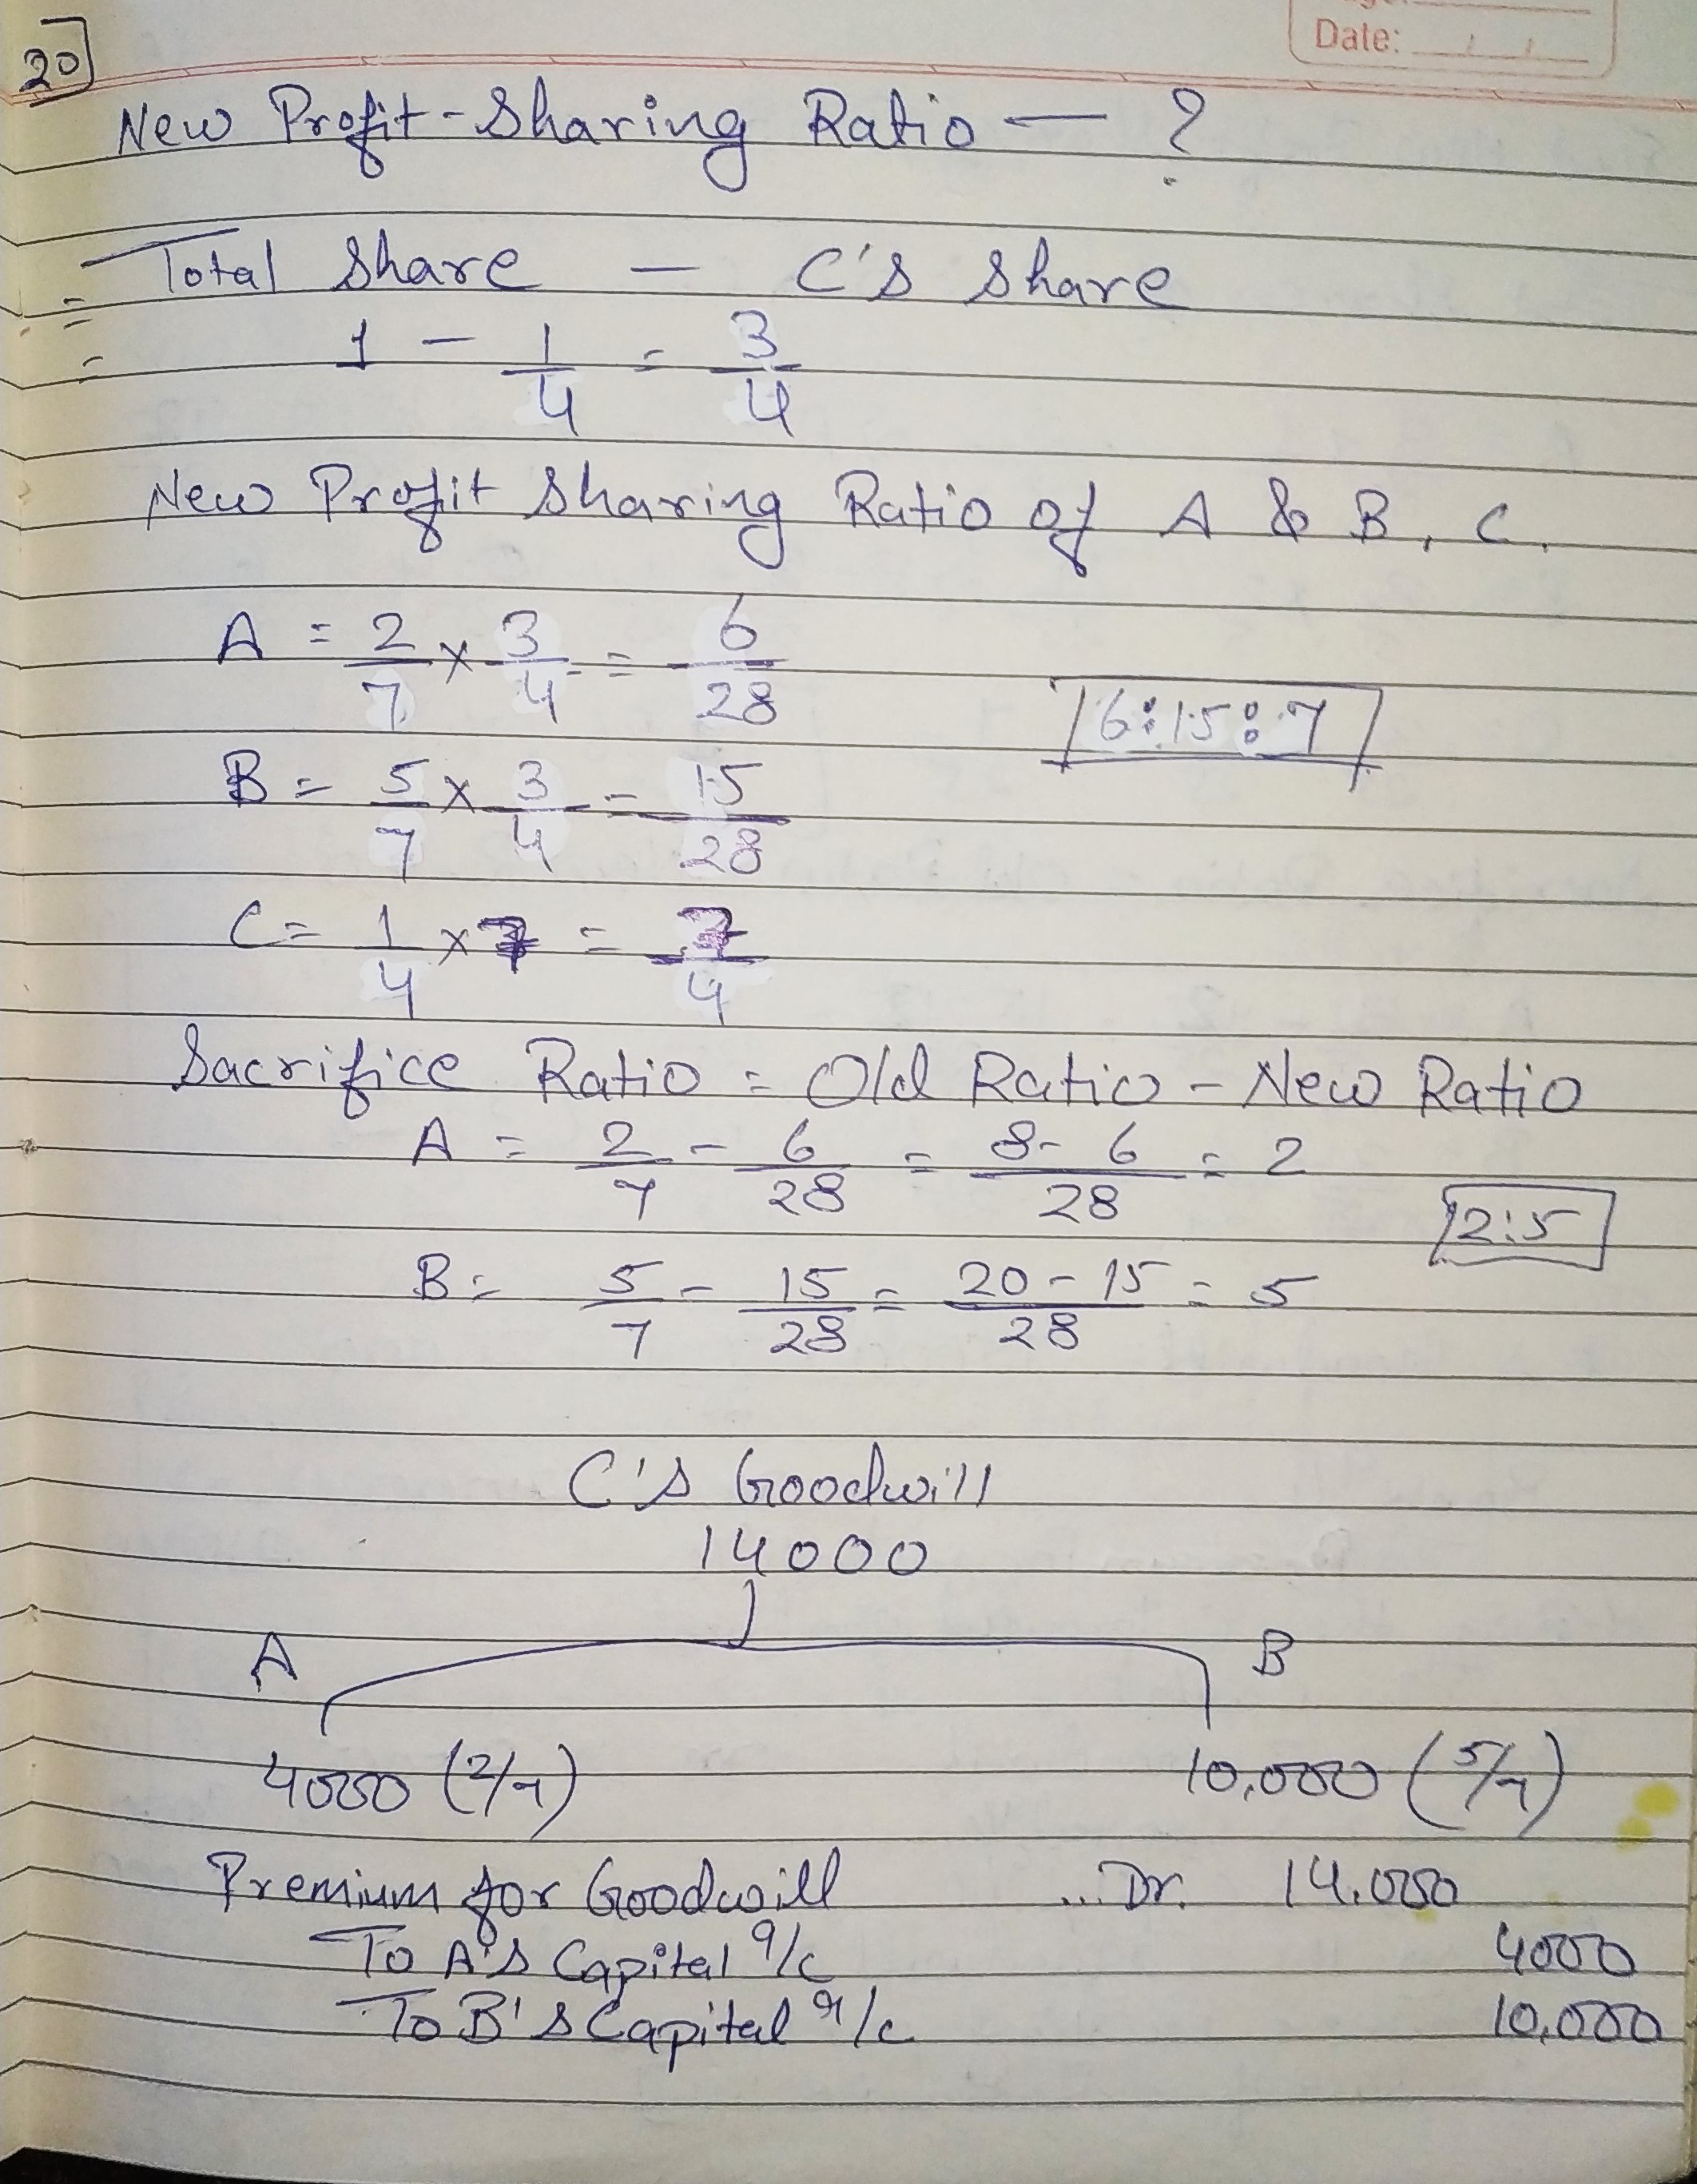 20
Date:
New Profit-Sharing Ratio — ?
= Total Share — C's Share
= 1 - 1/4 = 3/4
New Profit Sharing Ratio of A & B, C.
A = 2/7 x 3/4 = 6/28
6:15:7
B = 5/7 x 3/4 = 15/28
C = 1/4 x 7 = 7/4
Sacrifice Ratio = Old Ratio - New Ratio
A = 2/7 - 6/28 = 8-6/28 = 2
2:5
B = 5/7 - 15/28 = 20-15/28 = 5
C's Goodwill
14000
A B
4000 (2/7) 10,000 (5/7)
Premium for Goodwill ... Dr. 14,000
To A's Capital a/c 4000
To B's Capital a/c 10,000